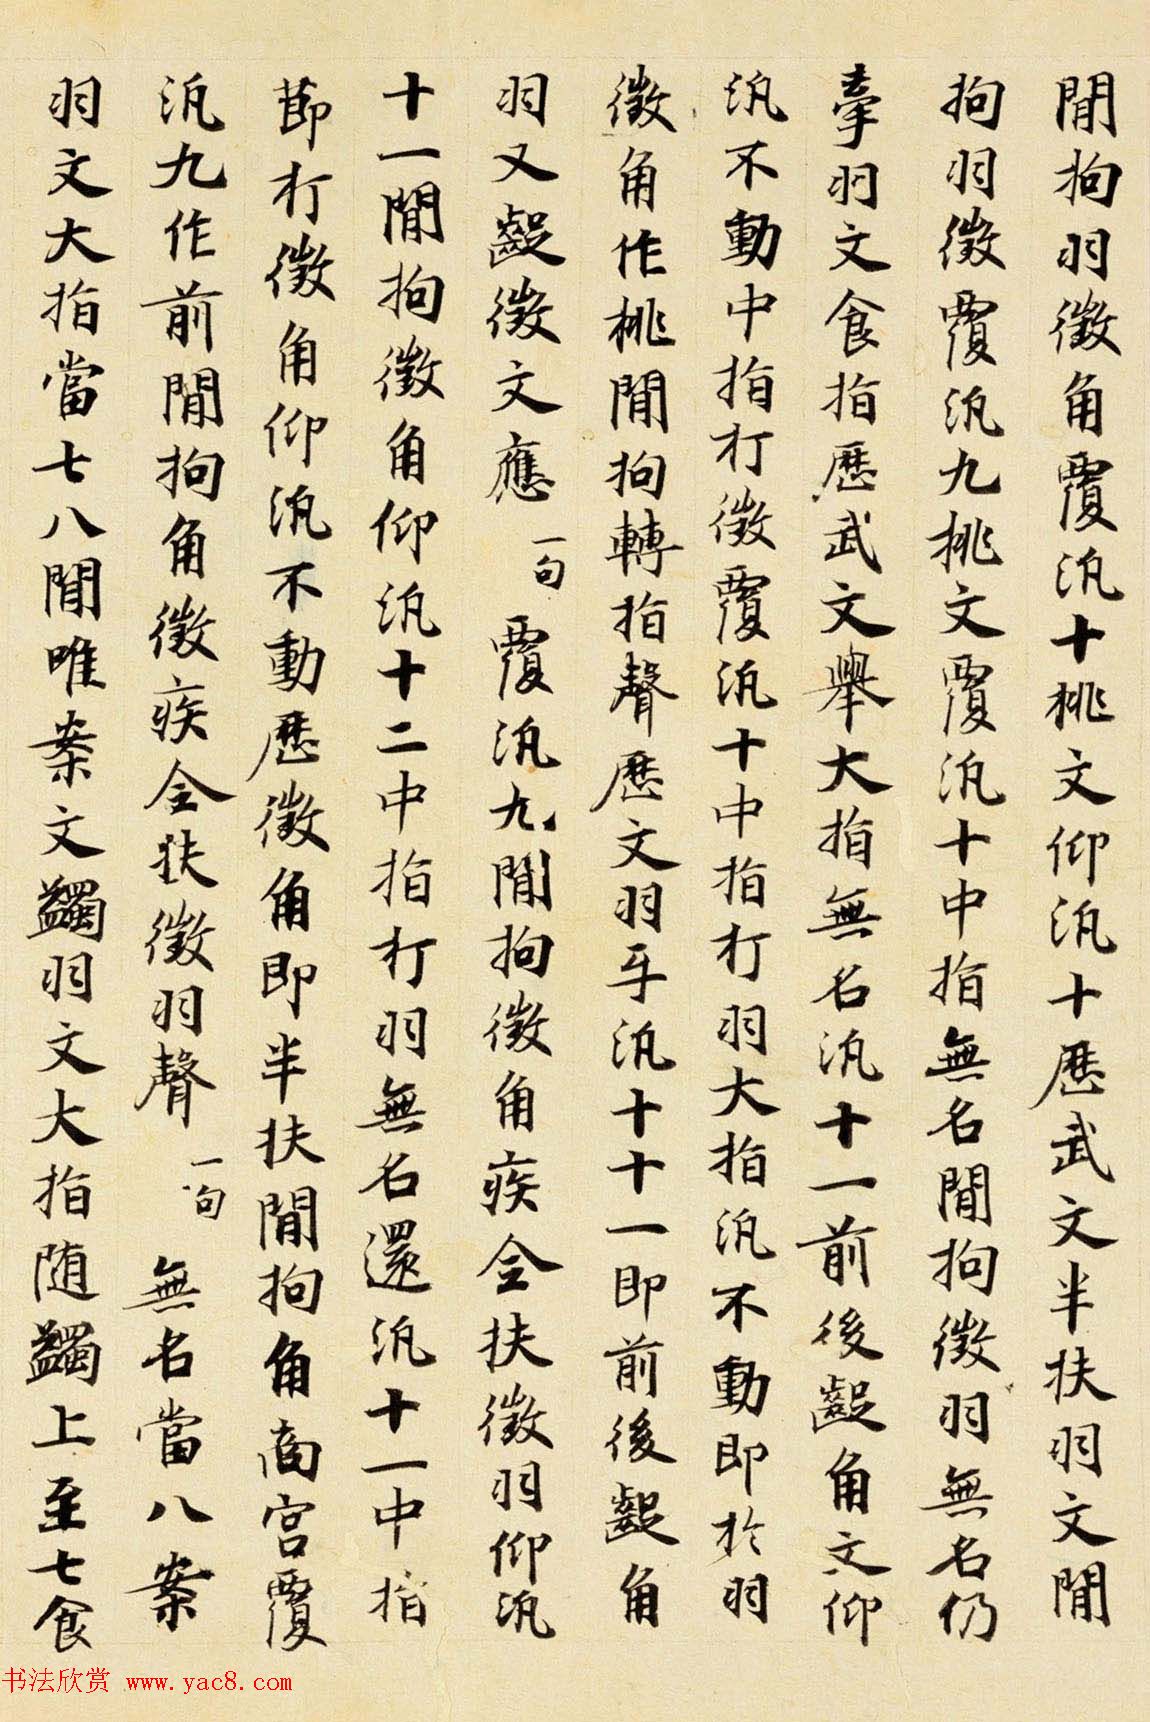 間拘羽徵角覆汎十挑文仰汎十歷武文半扶羽文間
拘羽徵覆汎九挑文覆汎十中指無名間拘徵羽無名仍
牽羽文食指歷武文舉大指無名汎十一前後齪角文仰
汎不動中指打徵覆汎十中指打羽大指汎不動即於羽
徵角作挑間拘轉指聲歷文羽牙汎十十一即前後齪角
羽又齪徵文應一句覆汎九間拘徵角疾全扶徵羽仰汎
十一間拘徵角仰汎十二中指打羽無名還汎十一中指
節打徵角仰汎不動歷徵角即半扶間拘角商宮覆
汎九作前間拘角徵疾全扶徵羽聲一句無名當八案
羽文大指當七八間唯案文蠲羽文大指随蠲上至七食
书法欣赏 www.yac8.com